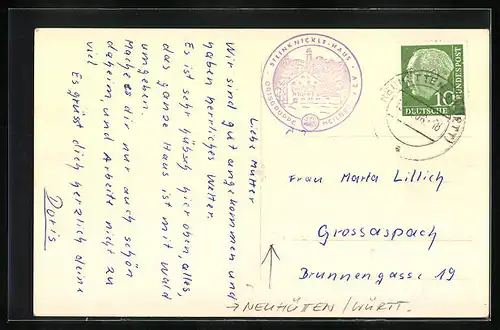 Liebe Mutter
Wir sind gut angekommen und
haben herrliches Wetter.
Es ist sehr hübsch hier oben, alles,
das ganze Haus ist mit Wald
umgeben.
Mache es dir nur auch schön
daheim, und arbeite nicht zu
viel
Es grüsst dich herzlich deine
Doris
STEINKNICKLE-HAUS
ORTSGRUPPE HEILBR
DEUTSCHE
BUNDESPOST
10
Frau Marta Lillich
Grossaspach
Brunnengasse 19
→ NEUHÜTTEN / WÜRTT.